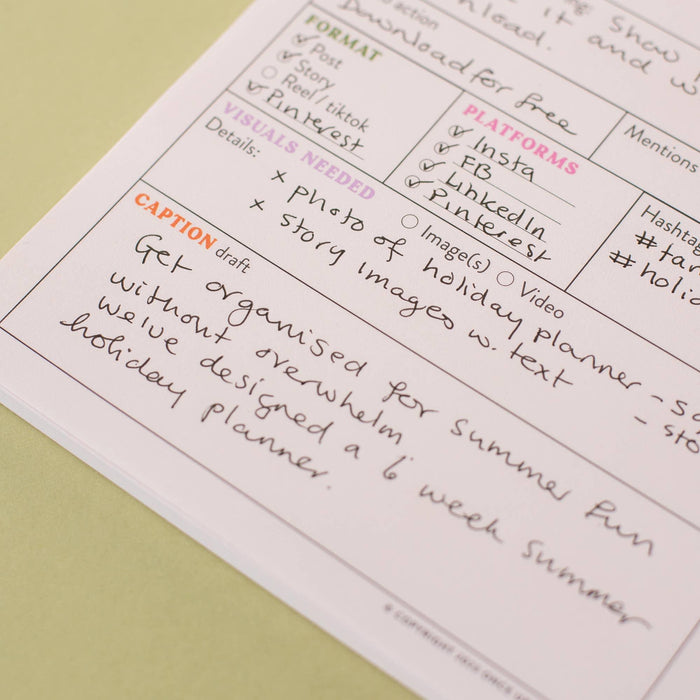 Show
it and w
nload.
action
Download for free
FORMAT
Post
Story
Reel/tiktok
Pinterest
PLATFORMS
Insta
FB
LinkedIn
Pinterest
Mentions
Hashtag
#tar
#holi
VISUALS NEEDED
Image(s)
Video
Details:
x photo of holiday planner - s
x story images w. text - sto
CAPTION draft
Get organised for summer fun
without overwhelm
we've designed a 6 week summer
holiday planner.
© COPYRIGHT